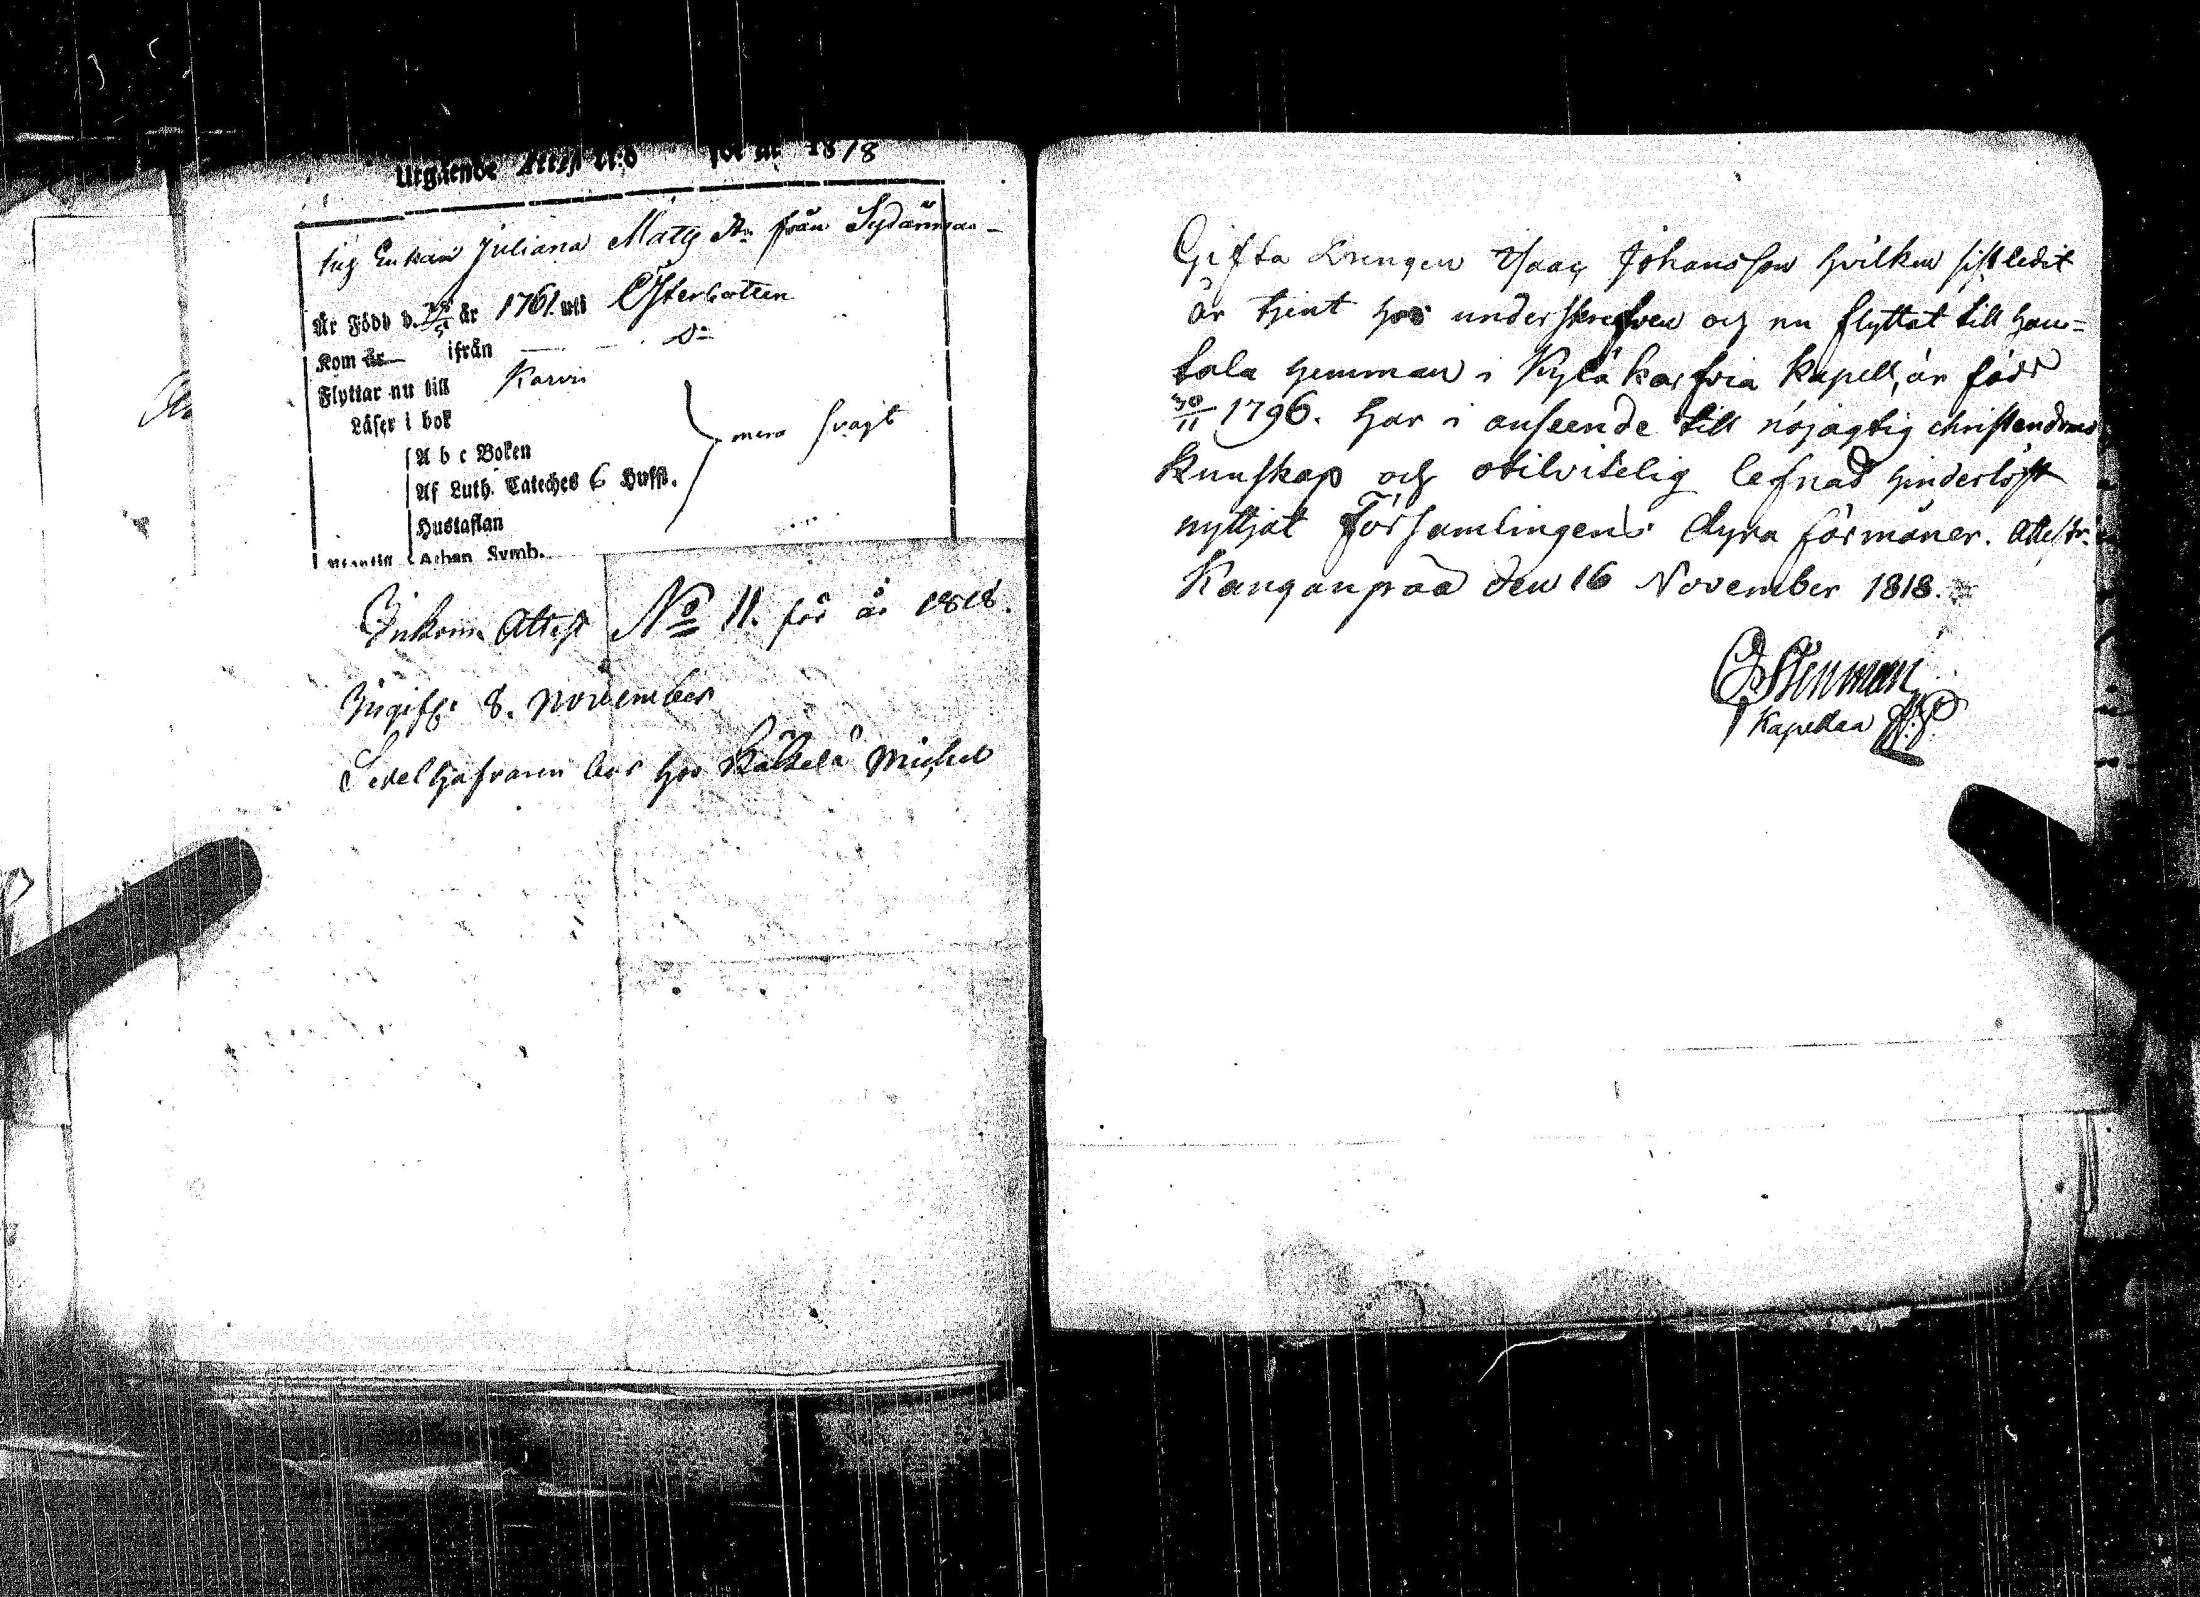 Utgående Attest N:o för år 1818
Enkan Juliana Matts Dr från Sydänmaa-
Är Född d. år 1761. uti Österbotten
Kom år ifrån Do
Flyttar nu till Karvia
Läser i bok
A b c Boken mera svagt
Af Luth. Cateches 6 Hufst.
Hustaflan
Athan Symb.
Inkom. Attest No 11. för år 1818.
8. November
hos Käkelä Michel
Gifta Drengen Isaac Johansson hvilken sistledit
år tjent hos underskrefven och nu flyttat till Han=
tala hemman i Kylä Karfvia Kapell, är född
30/11 1796. har i anseende till nöjagtig christendoms
kunskap och otilvitelig lefnad hinderlöst
nyttjat Församlingens dyra förmåner. Attestr.
Kanganpää den 16 November 1818.
Stenman
Kapellan